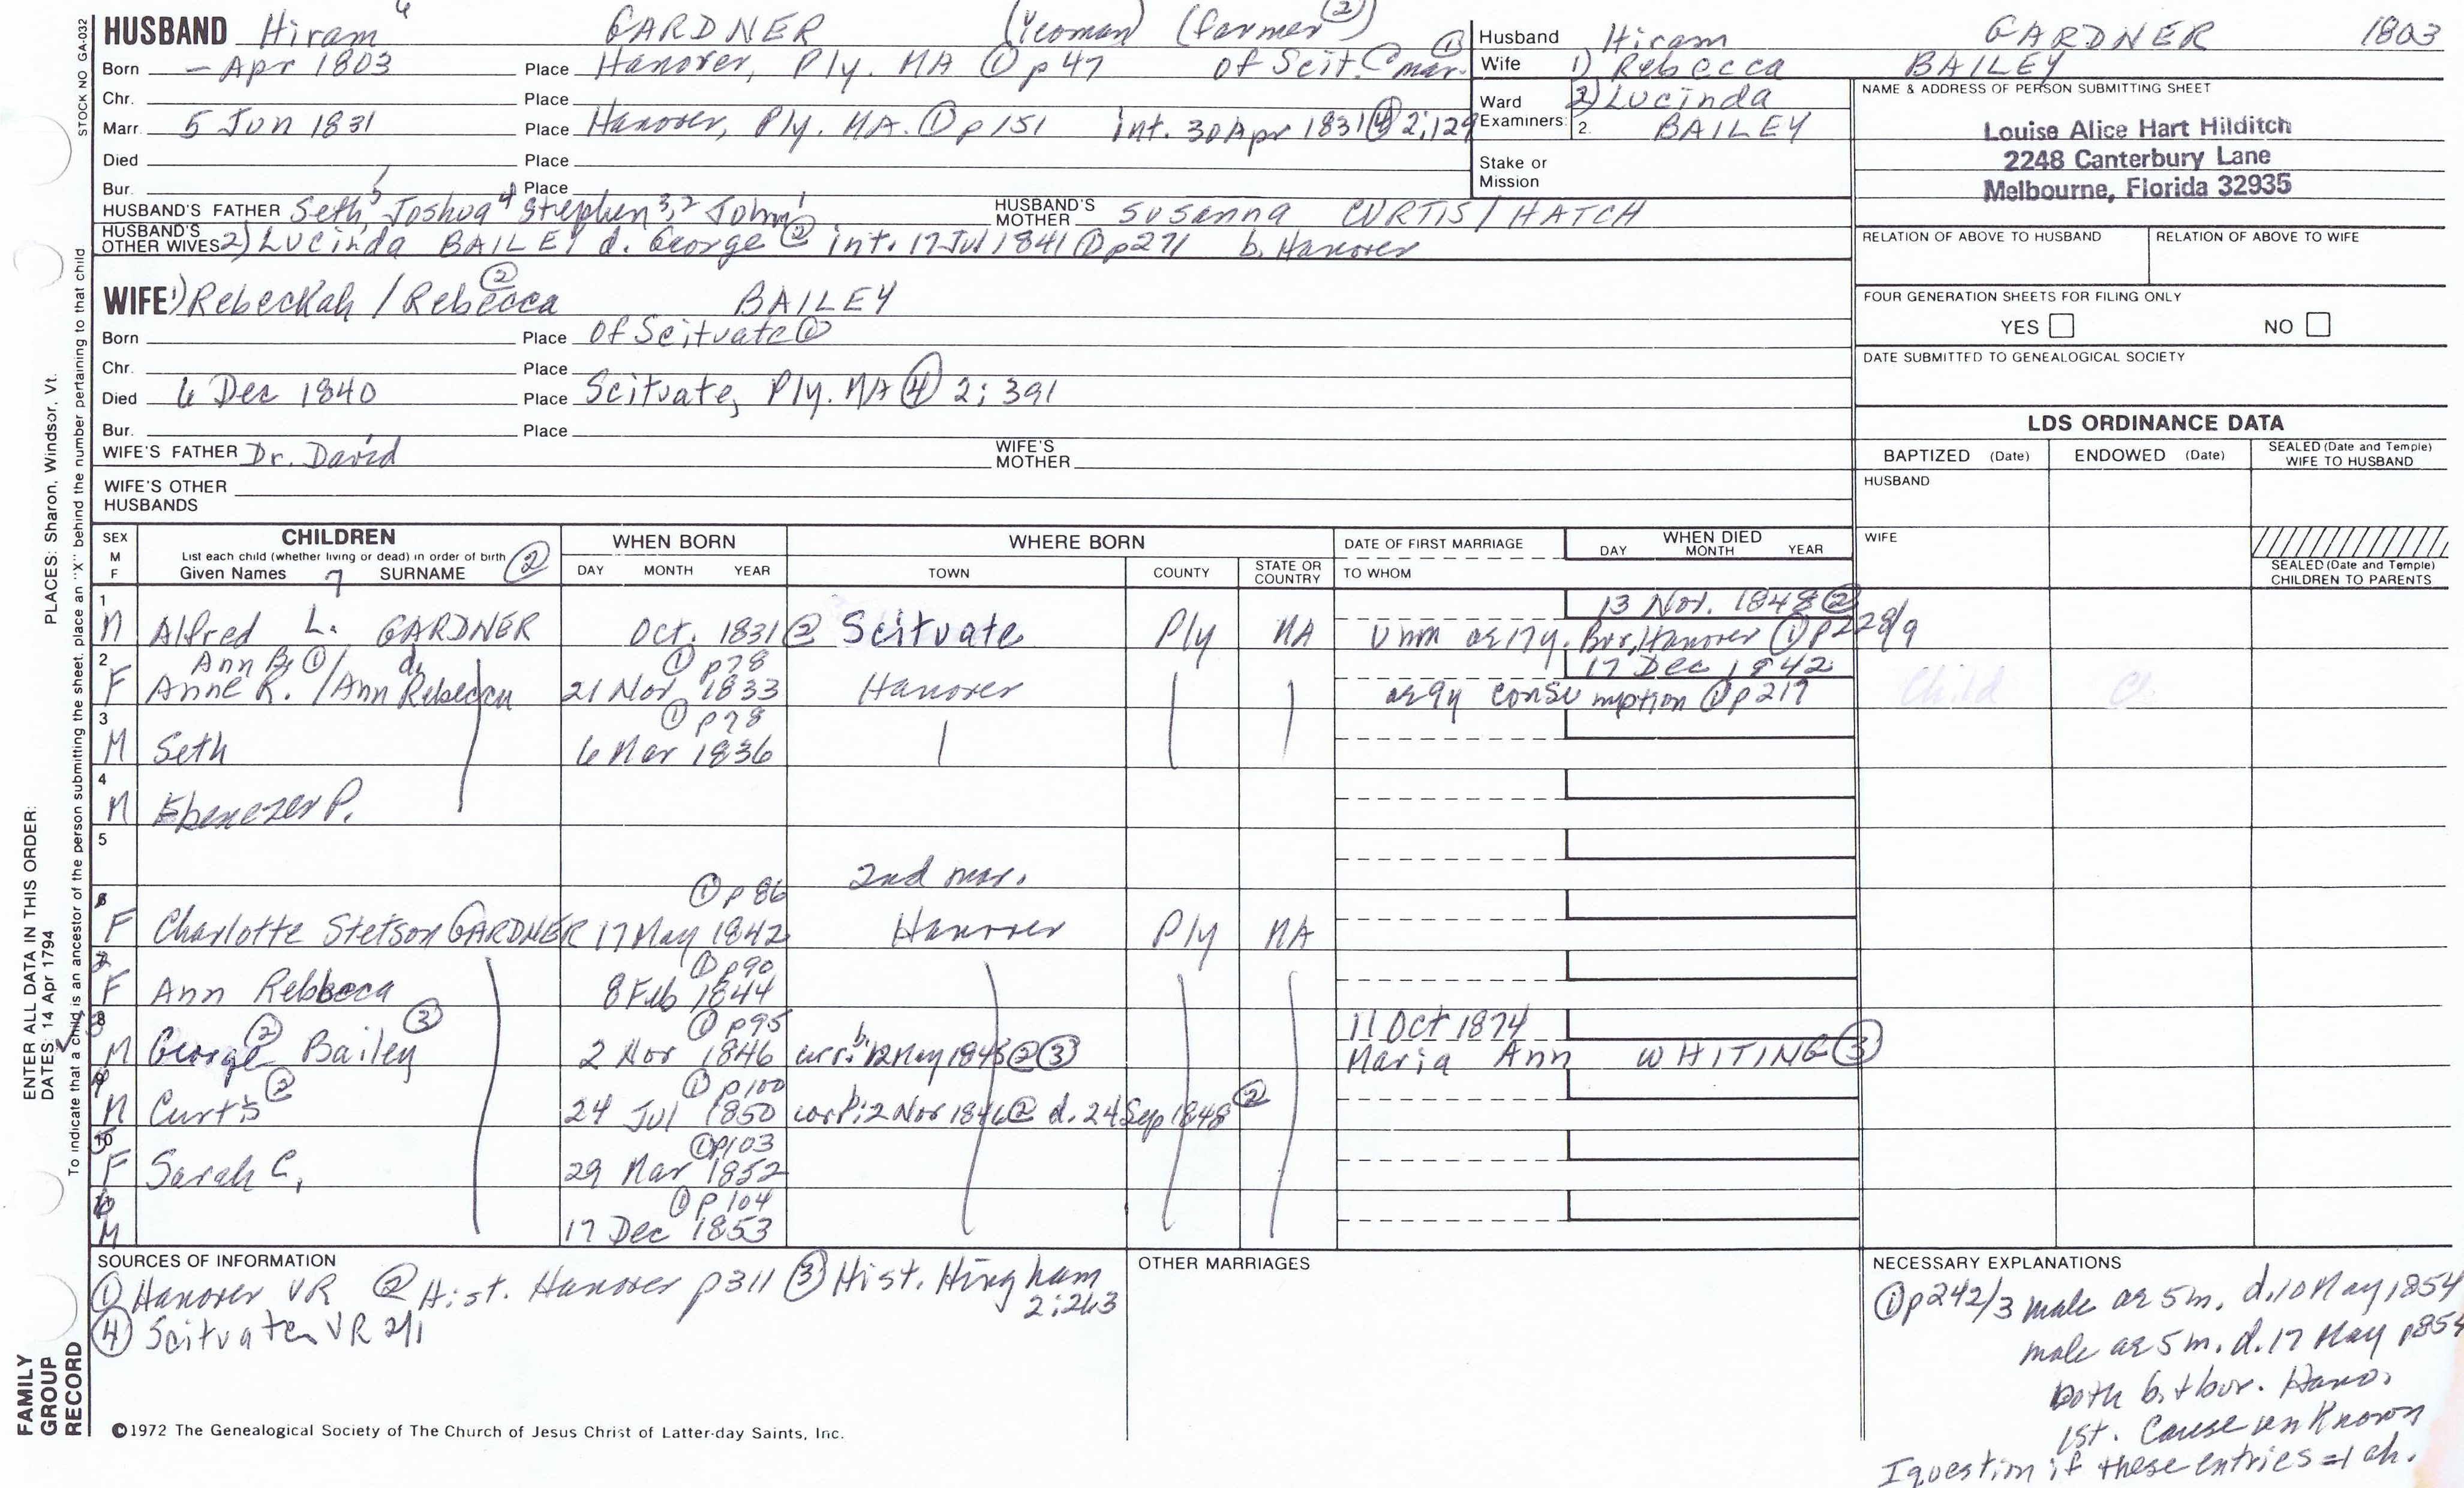 STOCK NO GA-032
HUSBAND Hiram 6 GARDNER (Yeoman) (farmer ②)
Born - Apr 1803 Place Hanover, Ply. MA ① p 47 of Scit. ① mar.
Chr. Place
Marr. 5 Jun 1831 Place Hanover, Ply. MA. ① p 151 Int. 30 Apr 1831 ④ 2;129
Died Place
Bur. Place
HUSBAND'S FATHER Seth 5 Joshua 4 Stephen 3,2 John 1 HUSBAND'S MOTHER Susanna CURTIS / HATCH
HUSBAND'S OTHER WIVES 2) Lucinda BAILEY d. George ② int. 17 Jul 1841 ① p 271 b. Hanover
WIFE 1) Rebeckah / Rebecca ② BAILEY
Born Place Of Scituate ①
Chr. Place
Died 6 Dec 1840 Place Scituate, Ply. MA ④ 2; 391
Bur. Place
WIFE'S FATHER Dr. David WIFE'S MOTHER
WIFE'S OTHER HUSBANDS
Husband Hiram GARDNER 1803
Wife 1) Rebecca BAILEY
Ward 2) Lucinda
Examiners: 2. BAILEY
Stake or Mission
NAME & ADDRESS OF PERSON SUBMITTING SHEET
Louise Alice Hart Hilditch
2248 Canterbury Lane
Melbourne, Florida 32935
RELATION OF ABOVE TO HUSBAND RELATION OF ABOVE TO WIFE
FOUR GENERATION SHEETS FOR FILING ONLY
YES NO
DATE SUBMITTED TO GENEALOGICAL SOCIETY
LDS ORDINANCE DATA
BAPTIZED (Date) ENDOWED (Date) SEALED (Date and Temple) WIFE TO HUSBAND
HUSBAND
WIFE
SEALED (Date and Temple) CHILDREN TO PARENTS
SEX M F CHILDREN WHEN BORN WHERE BORN DATE OF FIRST MARRIAGE WHEN DIED
List each child (whether living or dead) in order of birth ② DAY MONTH YEAR
Given Names 7 SURNAME DAY MONTH YEAR TOWN COUNTY STATE OR COUNTRY TO WHOM
1 13 Nov. 1848 ②
M Alfred L. GARDNER Oct. 1831 ② Scituate Ply MA Unm ae 17y. Bur. Hanover ① p 228/9
2 Ann B. ① d. ① p 78 17 Dec 1842
F Anne R. / Ann Rebecca 21 Nov 1833 Hanover ae 9y consumption ① p 217
3 ① p 78
M Seth 6 Mar 1836
4
M Ebenezer P.
5
2nd mar.
① p 86
F Charlotte Stetson GARDNER 17 May 1842 Hanover Ply MA
① p 90
F Ann Rebbeca 8 Feb 1844
8 ② ③ ① p 95 11 Oct 1874
M George Bailey 2 Nov 1846 corr. b. 12 May 1845 ② ③ Maria Ann WHITING ③
9 ② ① p 100
M Curtis 24 Jul 1850 corr. b: 2 Nov 1846 ② d. 24 Sep 1848 ②
10 ① p 103
F Sarah C. 29 Mar 1852
① p 104
M 17 Dec 1853
SOURCES OF INFORMATION
① Hanover VR ② Hist. Hanover p 311 ③ Hist. Hingham 2:263
④ Scituate VR 2/1
©1972 The Genealogical Society of The Church of Jesus Christ of Latter-day Saints, Inc.
OTHER MARRIAGES
NECESSARY EXPLANATIONS
① p 242/3 male ae 5 m. d. 10 May 1854
male ae 5 m. d. 17 May 1854
both b. + bur. Hano.
1st. Cause unknown
I question if these entries = 1 ch.
ENTER ALL DATA IN THIS ORDER:
DATES: 14 Apr 1794 PLACES: Sharon, Windsor, Vt.
To indicate that a child is an ancestor of the person submitting the sheet, place an "X" behind the number pertaining to that child
FAMILY GROUP RECORD